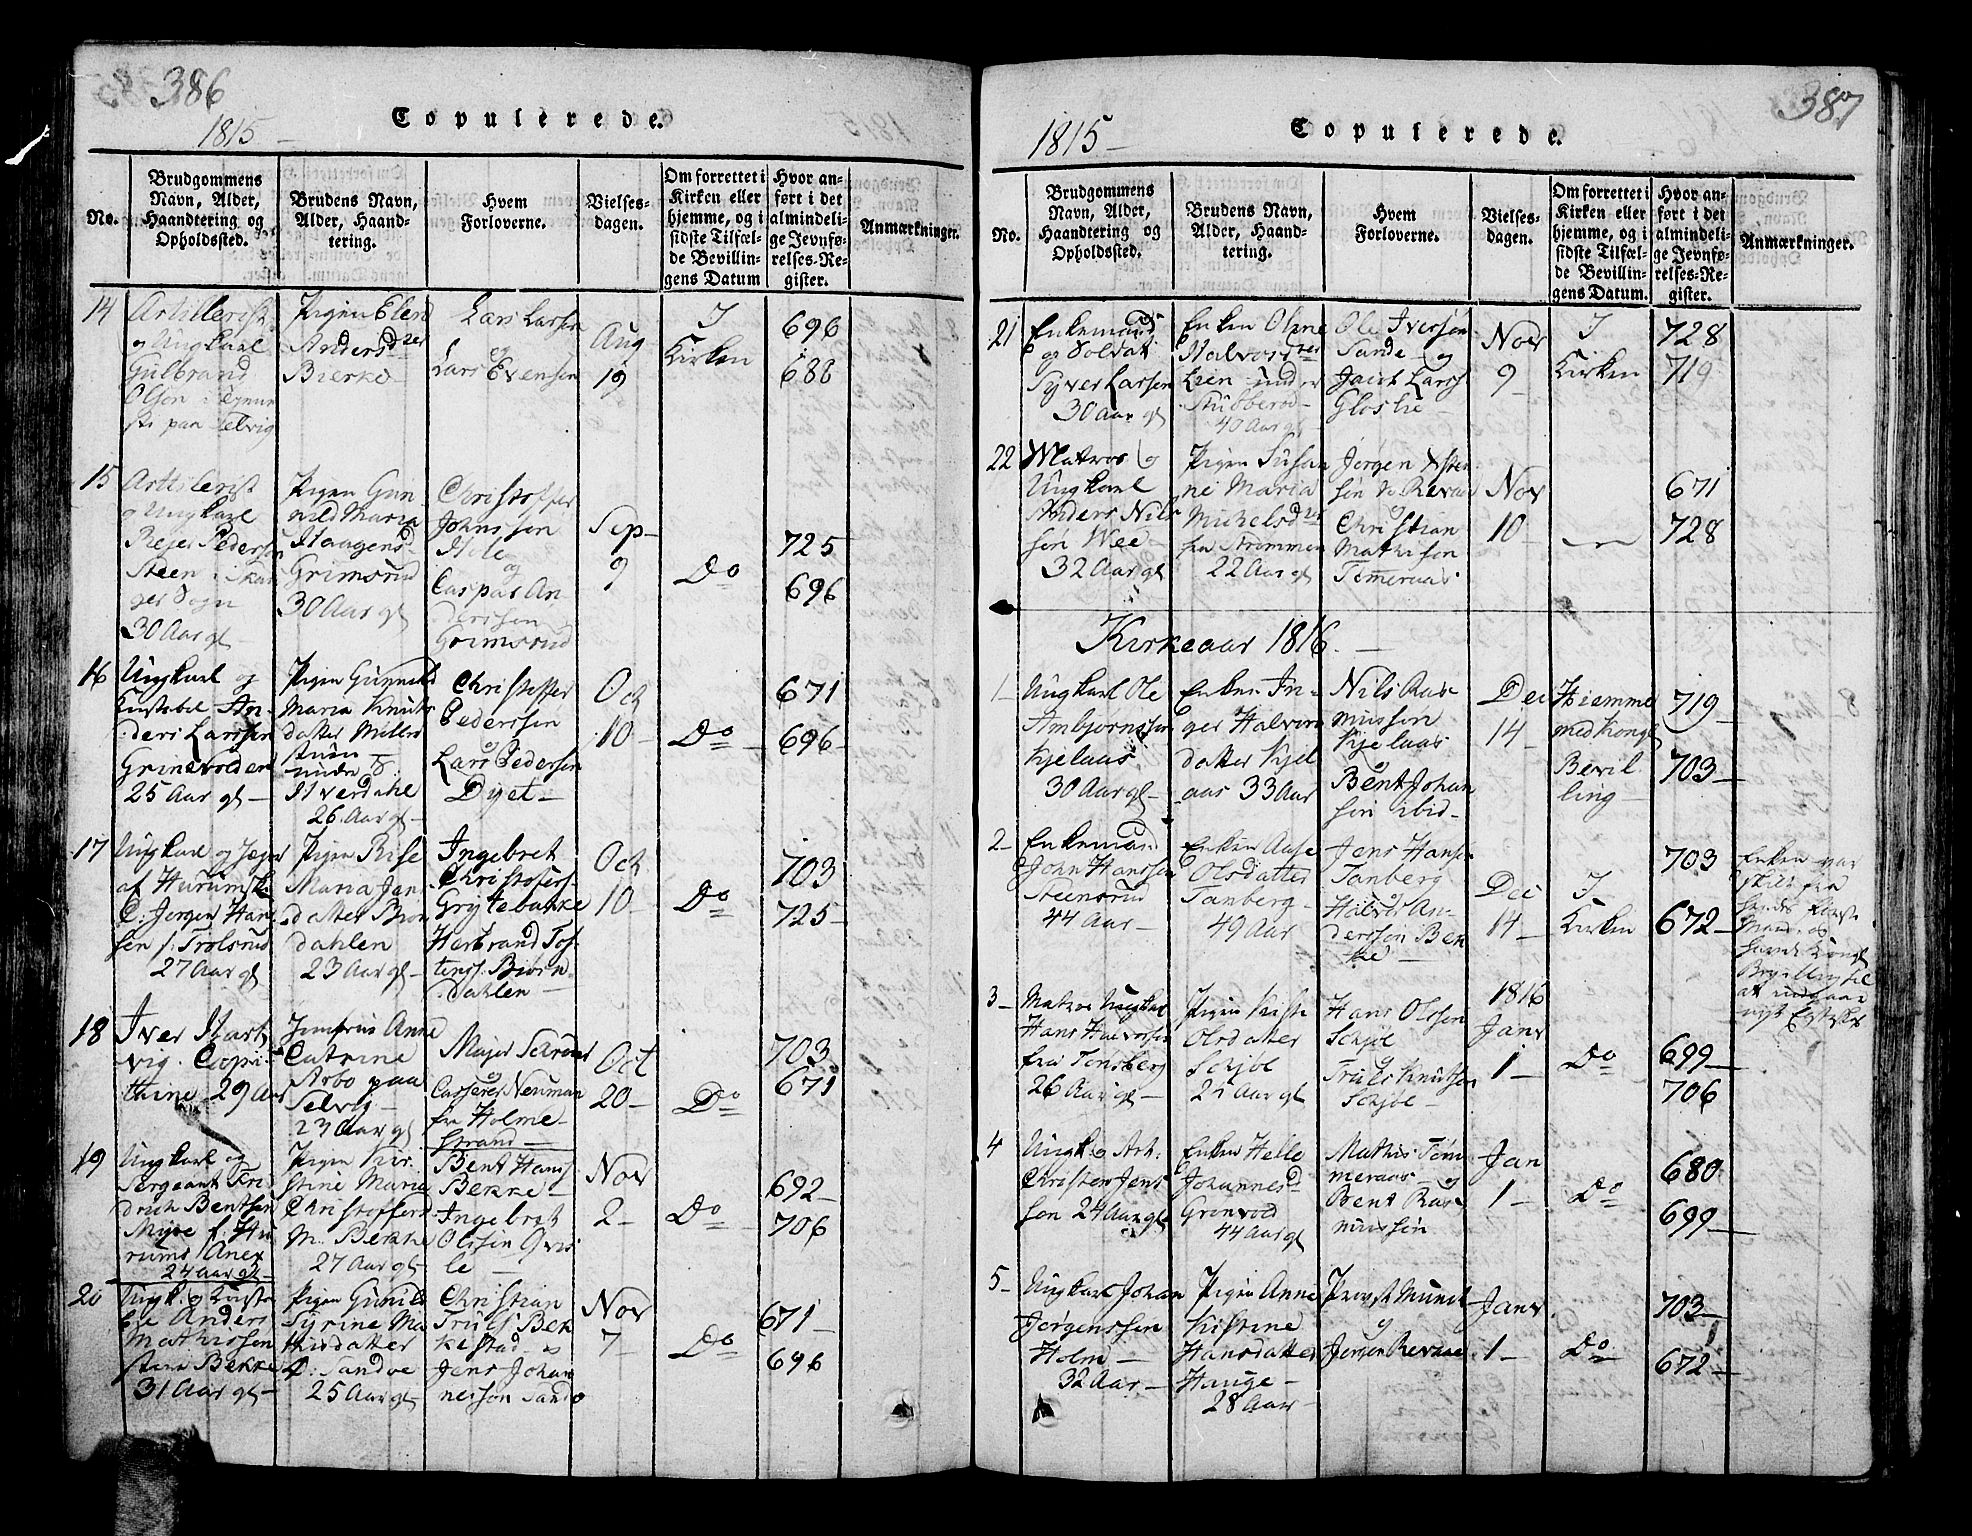 386
Copulerede.
1815 —
No.
Brudgommens
Navn, Alder,
Haandtering og
Opholdssted.
Brudens Navn,
Alder, Haand-
tering.
Hvem
Forloverne.
Vielses-
dagen.
Om forrettet i
Kirken eller
hjemme, og i
sidste Tilfæl-
de Bevillin-
gens Datum
Hvor an-
ført i det
almindeli-
ge Jevnfø-
relses-Re-
gister.
Anmærkninger.
14
Artillerist
og Ungkarl
Gulbrand
Olsen
paa Selvig
Pigen Elen
Andersdter
Bierke
Lars Larsen
og
Lars Evensen
Aug
19
I
Kirken
696
688
15
Artilerist
og Ungkarl
Rejer Pedersen
Steen i Skou
ger Sogn
30 Aar gl
Pigen Gun
nild Maria
Haagensd
Grimsrud
30 Aar gl
Christoffer
Johnssen
Hole
og
Caspar An
derssen
Grimsrud
Sep
9
Do
725
696
16
Ungkarl og
Constabel An-
ders Larssen
Grinevolden
25 Aar gl —
Pigen Gunnild
Maria Knuts
datter Möller
stuen
under
Itverdahl
26 Aar gl —
Christoffer
Pederssen
og
Lars Pedersen
Dyet —
Oct
10 —
Do
671
696 —
17
Ungkarl og Jæger
af Hurumske
C: Jørgen Han
sen f: Trolsrud
27 Aar gl
Pigen Rise
Maria Jens
datter Biørn
dahlen
23 Aar gl —
Ingebret
Christofers
Grytebakke
Herbrand Tof
tens. Biørn
dahlen —
Oct
10 —
Do
703
725 —
18
Iver Hart
vig. Copvi-
thine 29 Aar
Jomfrue Anne
Catrine
Arbo paa
Selvig —
23 Aar gl
Majer
og
Casserer Neuman
fra Holme-
strand —
Oct
20 —
Do
703
671
19
Ungkarl og
Sergeant Fri
drich Bentsen
Myre f. Hu
rums Anex
24 Aar gl —
Pigen Kir
stine Maria
Christofferd
M. Bekke
27 Aar gl —
Bent Hans
Bekke —
Ingebret
Olssen Qvis
le —
Nov
2 —
Do
692 —
706
20
Ungk: og Consta
ble Anders
Mathissen
Bekke
31 Aar gl —
Pigen Gunild
Syrine Ma
thisdatter
f: Sandøe
25 Aar gl
Christian
Truls Bek
kestad — og
Jens Johan
nessøn Sandø
Nov
7 —
Do
671 —
696
387
Copulerede.
1815 —
No.
Brudgommens
Navn, Alder,
Haandtering og
Opholdssted.
Brudens Navn,
Alder, Haand-
tering.
Hvem
Forloverne.
Vielses-
dagen.
Om forrettet i
Kirken eller
hjemme, og i
sidste Tilfæl-
de Bevillin-
gens Datum.
Hvor an-
ført i det
almindeli-
ge Jevnfø-
relses-Re-
gister.
Anmærkninger.
21
Enkemand
og Soldat
Syver Larsen
30 Aar gl
Enken Oline
Halvorsdter
Lien under
Stubberød —
40 Aar gl
Ole Iversøn
Sande — og
Jacob Lars
Gloslie —
Nov
9 —
I
Kirken
728
719
22
Matros og
Ungkarl
Anders Nils
søn Wee
32 Aar gl
Pigen Susan
ne Maria
Michelsdter
fra Strømmen
22 Aar gl
Jørgen
søn Revaa
og
Christian
Mathisøn
Tømeraas
Nov
10 —
671
728
Kirkeaar 1816. —
1 —
Ungkarl Ole
Ambjørnssen
Kjelaas
30 Aar gl —
Enken In-
ger Halvors
datter Kjel
aas 33 Aar
Nils Ras
mussøn
Kjelaas
og
Bent Johan
søn ibid —
Dec
14 —
Hiemme
med Kongl
Bevil
ling —
719
703 —
2 —
Enkemand
John Hanssen
Steensrud
44 Aar —
Enken Aase
Olsdatter
Tanberg —
49 Aar
Jens Hans
Tanberg
Halvor An-
derssøn Bek
ke —
Dec
14 —
I
Kirken
703
672 —
Enken var
skilt fra
hendes første
Mand, og
havde Kongl
Bevilling til
at indgaae
nyt Egteskab
3 —
Matros Ungkar
Hans Halvorsen
fra Tønsberg
26 Aar gl —
Pigen Kisti
Olsdatter
Schjøl
24 Aar gl
Hans Olssen
Schjøl
og
Truls Knutsen
Schjøl —
1816
Janv
1 —
Do
699 —
706
4
Ungk: og Art.
Christen Jens
søn 24 Aar gl
Enken Helle
Johannesd
Grønvold
44 Aar gl
Mathis Tøm
meraas — og
Bent Ras
mussøn
Jan
1 —
Do
680
699 —
5 —
Ungkarl Johan
Jørgenssen
Holm —
32 Aar —
Pigen Anne
Kistine
Hansdatter
Hauge —
28 Aar —
Provst Munch
og
Jørgen Revaae
Janv
1 —
Do
703 —
672 —